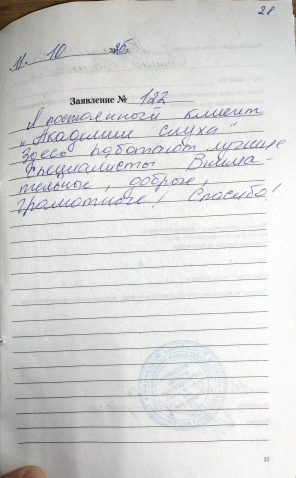 28
11. 10 2025
Заявление № 122
Я постоянный клиент
"Академии слуха"
Здесь работают лучшие
специалисты Внима-
тельные, добрые,
грамотные! Спасибо!
57